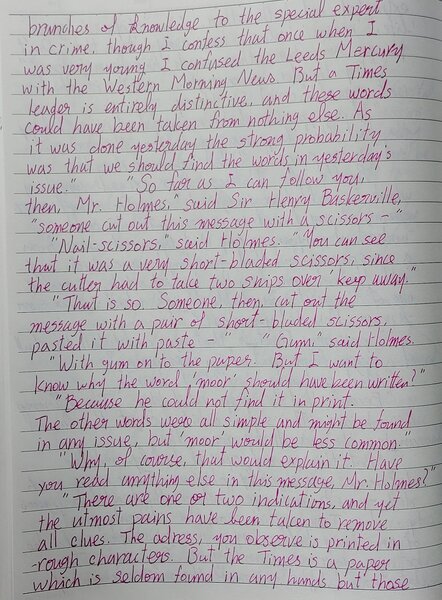 branches of knowledge to the special expert
in crime, though I confess that once when I
was very young I confused the Leeds Mercury
with the Western Morning News. But a Times
leader is entirely distinctive, and these words
could have been taken from nothing else. As
it was done yesterday the strong probability
was that we should find the words in yesterday's
issue." "So far as I can follow you,
then, Mr. Holmes," said Sir Henry Baskerville,
"someone cut out this message with a scissors – "
"Nail-scissors," said Holmes. "You can see
that it was a very short-bladed scissors, since
the cutter had to take two snips over 'keep away."
"That is so. Someone, then, cut out the
message with a pair of short-bladed scissors,
pasted it with paste – " "Gum," said Holmes.
"With gum on to the paper. But I want to
know why the word 'moor' should have been written?"
"Because he could not find it in print.
The other words were all simple and might be found
in any issue, but 'moor' would be less common."
"Why, of course, that would explain it. Have
you read anything else in this message, Mr. Holmes?"
"There are one or two indications, and yet
the utmost pains have been taken to remove
all clues. The adress, you observe is printed in
-rough characters. But the Times is a paper
which is seldom found in any hands but those